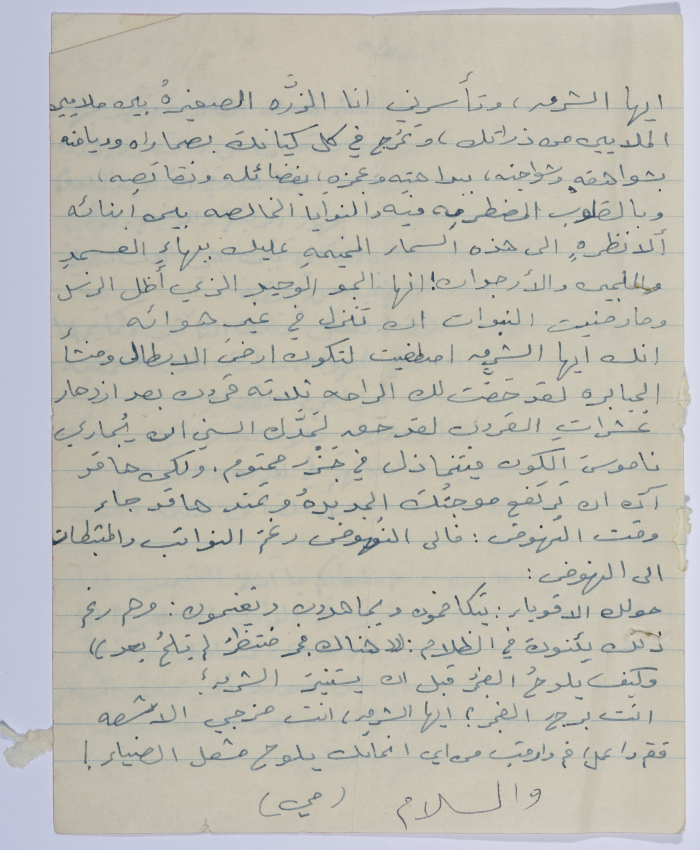 ايها الشرق، وتأسرني انا الذرَّه الصغيرةُ بين ملايين
الملايين من ذراتك، وتمرج في كل كيانك بصحاراه ورياضه
بشواهقه وشواجنه، بداهته وغمزه، بفضائله ونقائصه،
وبالقلوب المضطرمه فيه والنوايا الخالصه بين أبنائه
ألا نظرهٍ الى هذه السماء المخيمةِ عليك ببهاءِ العسجدِ
واللجين والأرجوان! انها الجو الوحيد الذي أظل الرسل
وما رضيت النبوات ان تنزل في غير هوائه
انك ايها الشرق اصطفيت لتكون ارضَ الابطال ومنشأ
الجبابره لقد حقَّت لك الراحه ثلاثه قرون بعد ازدهار
عشراتِ القرون لقد حق لمَدِّك السني ان يُجاري
ناموسَ الكون فيتخاذل في جَزْر محتوم. ولكن ها قد
آن ان ترتفع موجتُك الجديدةُ وتمتد ها قد جاء
وقت النهوض: فالى النهوض رغمَ النوائب والمثبطات
الى النهوض:
حولك الاقوياء: يتكافحون ويجاهدون ويغنمون: وهم رغم
ذلك يئنون في الظلام: ((هناك فجر منتظرٌ لم يَلُحْ بعد))
وكيف يلوحُ الفجرُ قبل ان يستنيرَ الشرق؟
انت برجُ الفجر؛ ايها الشرق، انت مزجي الاشعه
فقم واعمل ثم وارقب من اي انحائك يلوح مشعل الضياء!
والسلام (مي)